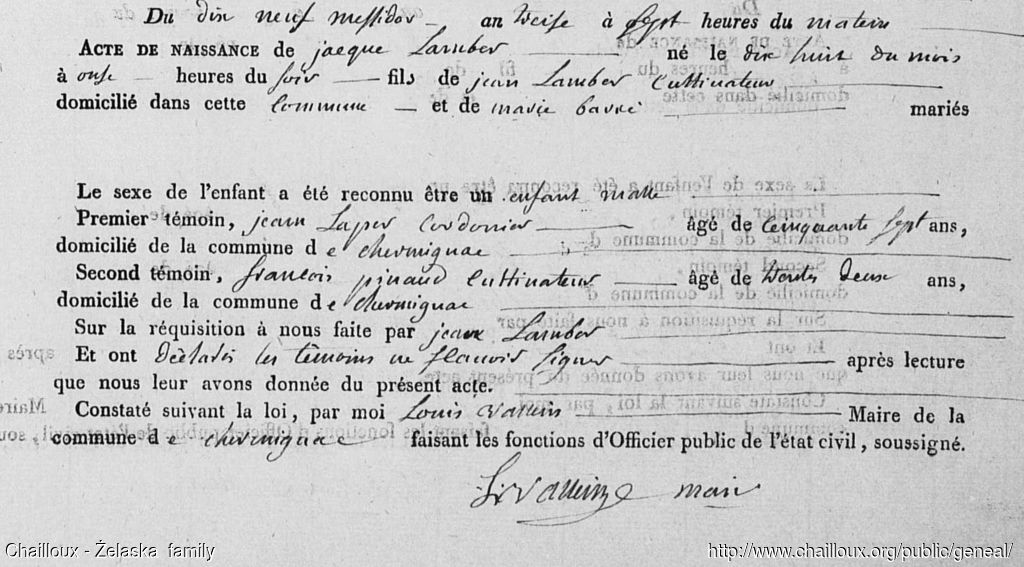 Du dix neuf messidor an treise à sept heures du matin
ACTE DE NAISSANCE de jacque Lamber né le dix huit du mois
à onse heures du soir fils de jean Lamber Cultivateur
domicilié dans cette Commune et de marie barré mariés
Le sexe de l'enfant a été reconnu être un enfant malle
Premier témoin, jean Cordonier âgé de Cinquante sept ans,
domicilié de la commune de chermignac
Second témoin, francois pinaud Cultivateur âgé de trente deux ans,
domicilié de la commune de chermignac
Sur la réquisition à nous faite par jean Lamber
Et ont declaré les témoins ne scavoir signer après lecture
que nous leur avons donnée du présent acte.
Constaté suivant la loi, par moi Louis Maire de la
commune de chermignac faisant les fonctions d'Officier public de l'état civil, soussigné.
maire
Chailloux - Żelaska family http://www.chailloux.org/public/geneal/